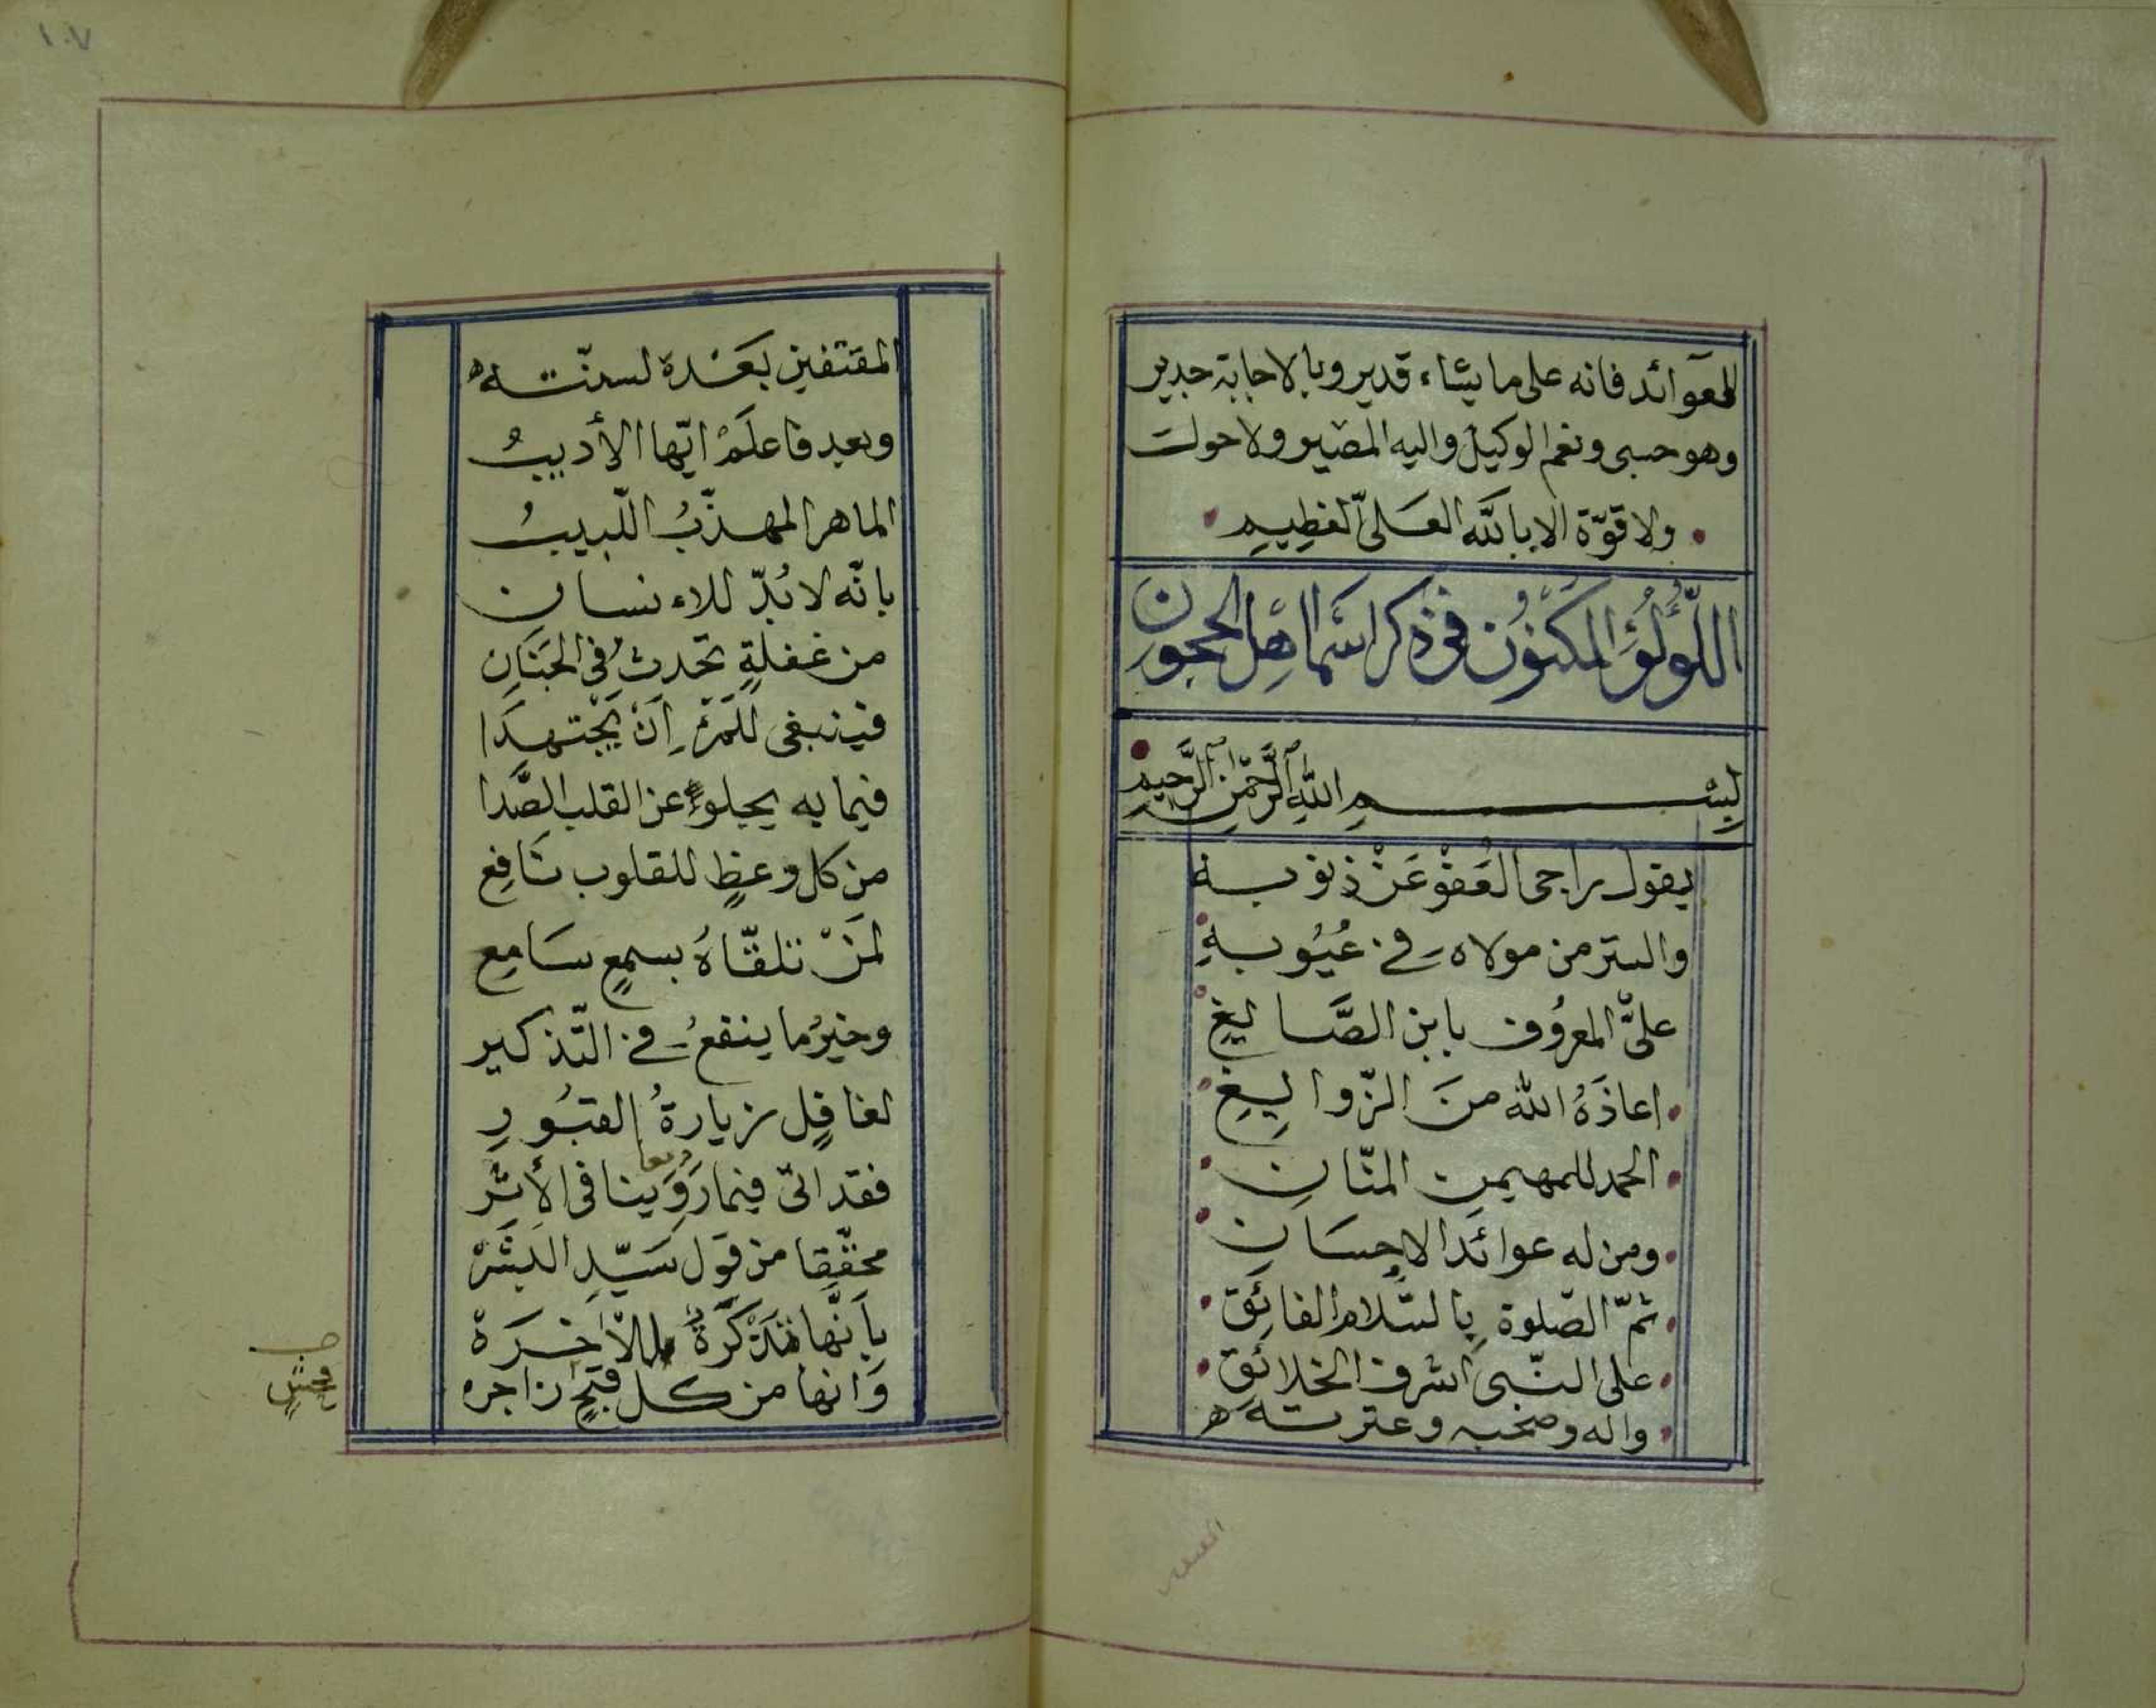 للعوائد فانه على ما يشاء قدير وبالاجابة جدير
وهو حسبى ونعم الوكيل واليه المصير ولا حول
ولا قوّة الا بالله العلىّ العظيم
اللُّؤلُؤُ المكنُون فى ذكر اسمَا اهل الحجون
بِسْمِ اللهِ الرَّحْمٰنِ الرَّحِيمِ
يقول راجى العَفْو عَنْ ذنوبه
والستر من مولاه فى عُيُوبهِ
علىُّ المعرُوف بابن الصَّايغِ
اعاذَهُ الله منَ الزّوايغِ
الحمد للمهيمن المنّانِ
ومن له عوائد الاحسَانِ
ثمّ الصّلوة بالسّلام الفائِقِ
على النّبى اشرف الخلائِقِ
واله وصحبه وعترته
١٠٧
المقتفين بَعْده لسنّته
وبعد فاعلَمْ ايّها الأديبُ
الماهر المهذّبُ اللّبيبُ
بانّه لا بُدّ للاءنسان
من غفلةٍ تحدثُ فى الجَنَانِ
فينبغى للمَرْءِ اَنْ يَجْتهدَا
فيما به يجلوا عن القلب الصَّدا
من كل وعظٍ للقلوب نَافِع
لمَنْ تلقّاهُ بسمعٍ سَامِع
وخيرُ ما ينفعُ فى التّذكير
لغافلٍ زيارةُ القبُورِ
فقد اتىّ فيما رَوَينا فى الأثر
محقّقا من قول سَيّدِ البَشَرْ
بِأَنَّها تذكرَةٌ للْاَخرَة
وَانها من كل قبحٍ زاجره
فحشٍ